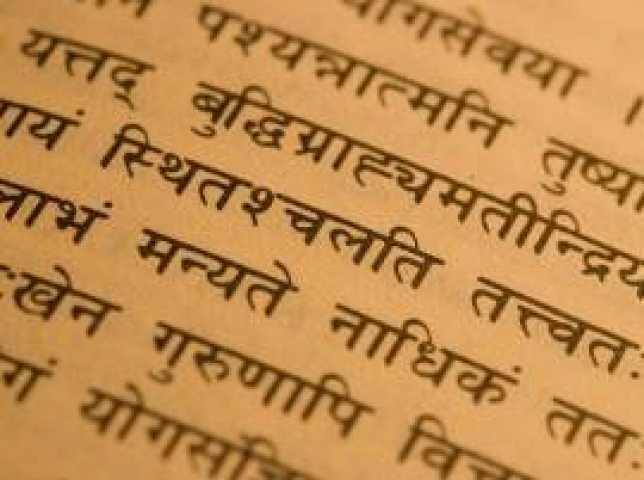 योगसेवया ।
न पश्यन्नात्मनि तुष्य
यत्तद् बुद्धिग्राह्यमतीन्द्रिय
ायं स्थितश्चलति तत्त्वतः
लाभं मन्यते नाधिकं ततः
ःखेन गुरुणापि विच
गं योगसंज्ञि